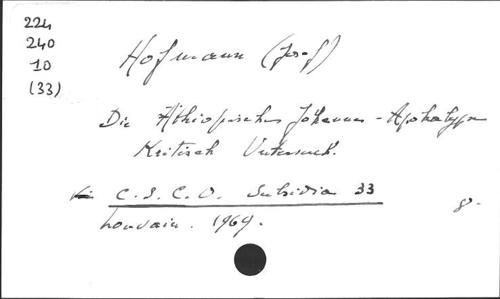 224
240
10
(33)
Hofmann (Josef)
Die Äthiopischen Johannes-Apokalypse
Kritisch Untersuch.
C.S.C.O. Subsidia 33
Louvain. 1969.
8°